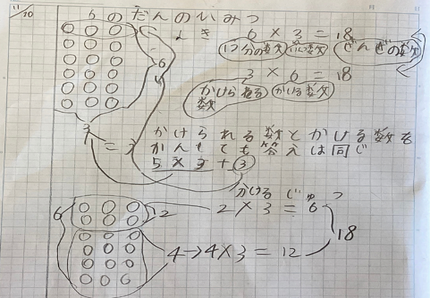 11/10
6のだんのいみつ
しき 6×3=18
1つ分の数 いくつ分 ぜんぶの数
3×6=18
かけられる数 かける数
6
3
かけられる数とかける数を
かんしても答えは同じ
5×3+3
かける じゅつ
6 2 2×3=6
4→4×3=12
18